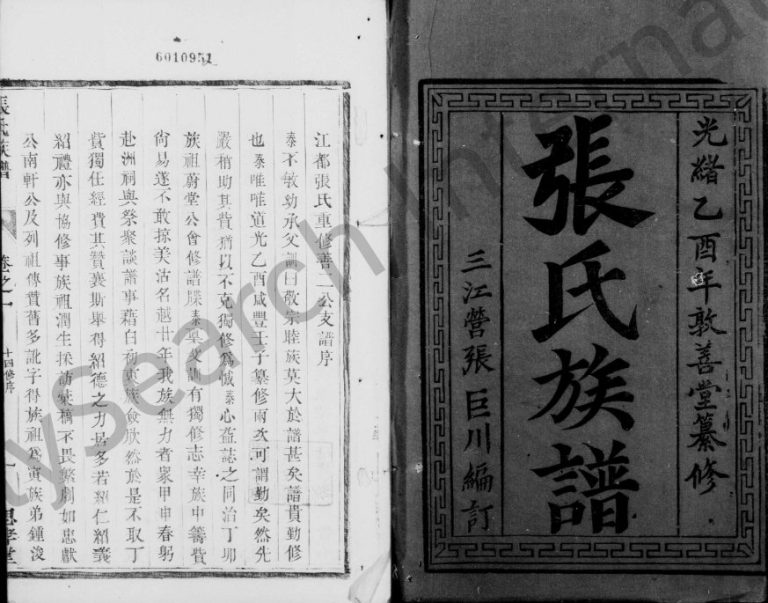 光緒乙酉年敦善堂纂修
張氏族譜
三江營張巨川編訂
6010951
江都張氏重修善二公支譜序
泰不敏幼承父訓曰敬宗睦族莫大於譜甚矣譜貴勤修
也泰唯唯道光乙酉咸豐壬子纂修兩次可謂勤矣然先
嚴稍助其貲猶以不克獨修為憾泰心益誌之同治丁卯
族祖蔚堂公會修譜牒泰稟父訓有獨修志幸族中籌費
尚易遂不敢掠美沽名越廿年我族無力者眾甲申春躬
赴洲祠與祭聚談譜事藉白初衷族僉欣然於是不取丁
貲獨任經費其贊襄斯舉得紹德之力居多若紹仁紹義
紹禮亦與協修事族祖潤生採訪彙稿不畏繁劇如忠獻
公南軒公及列祖傳贊舊多訛字得族祖為寅族弟鍾浚
張氏族譜
卷之一
十四修序
一
思孝堂